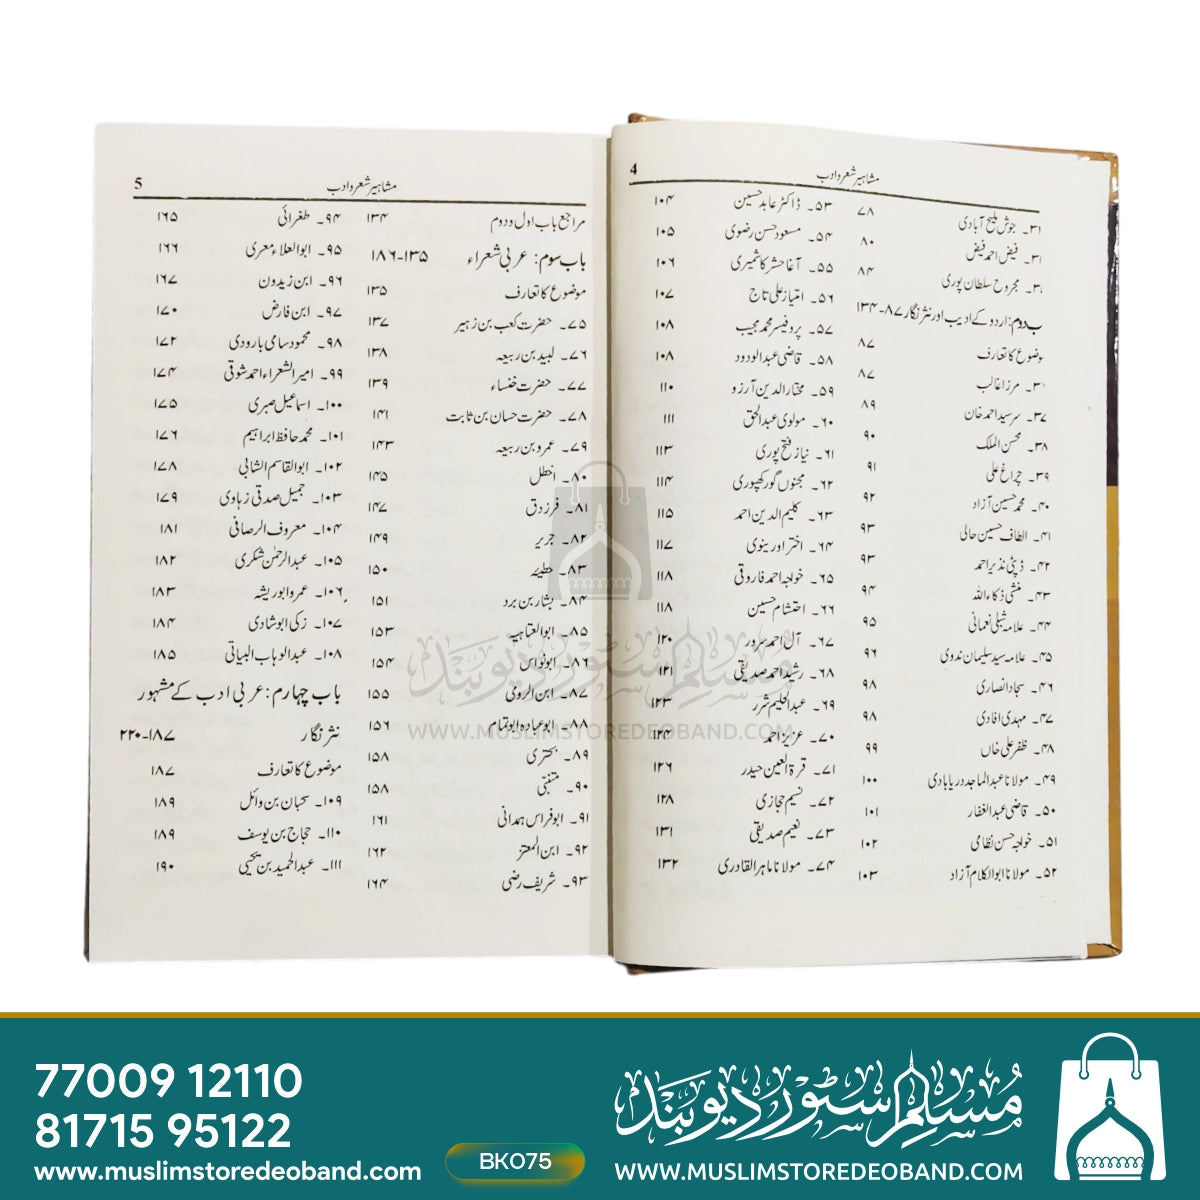 4
مشاہیر شعر و ادب
۳۱۔ جوش ملیح آبادی ۷۸
۳۱۔ فیض احمد فیض ۸۰
۳۔ مجروح سلطان پوری ۸۴
ب دوم: اردو کے ادیب اور نثر نگار ۸۷-۱۳۴
وضوع کا تعارف ۸۷
۳۔ مرزا غالب ۸۷
۳۷۔ سر سید احمد خان ۸۹
۳۸۔ محسن الملک ۹۰
۳۹۔ چراغ علی ۹۱
۴۰۔ محمد حسین آزاد ۹۲
۴۱۔ الطاف حسین حالی ۹۳
۴۲۔ ڈپٹی نذیر احمد ۹۳
۴۳۔ منشی ذکاء اللہ ۹۴
۴۴۔ علامہ شبلی نعمانی ۹۵
۴۵۔ علامہ سید سلیمان ندوی ۹۶
۴۶۔ سجاد انصاری ۹۸
۴۷۔ مہدی افادی ۹۸
۴۸۔ ظفر علی خاں ۹۹
۴۹۔ مولانا عبد الماجد دریابادی ۱۰۰
۵۰۔ قاضی عبد الغفار ۱۰۱
۵۱۔ خواجہ حسن نظامی ۱۰۲
۵۲۔ مولانا ابوالکلام آزاد ۱۰۳
۵۳۔ ڈاکٹر عابد حسین ۱۰۴
۵۴۔ مسعود حسن رضوی ۱۰۵
۵۵۔ آغا حشر کاشمیری ۱۰۶
۵۶۔ امتیاز علی تاج ۱۰۷
۵۷۔ پروفیسر محمد مجیب ۱۰۸
۵۸۔ قاضی عبد الودود ۱۰۸
۵۹۔ مختار الدین آرزو ۱۱۰
۶۰۔ مولوی عبد الحق ۱۱۱
۶۱۔ نیاز فتح پوری ۱۱۳
۶۲۔ مجنوں گورکھپوری ۱۱۴
۶۳۔ کلیم الدین احمد ۱۱۵
۶۴۔ اختر اورینوی ۱۱۷
۶۵۔ خواجہ احمد فاروقی ۱۱۸
۶۶۔ احتشام حسین ۱۱۸
۶۷۔ آل احمد سرور ۱۲۰
۶۸۔ رشید احمد صدیقی ۱۲۱
۶۹۔ عبد الحلیم شرر ۱۲۳
۷۰۔ عزیز احمد ۱۲۴
۷۱۔ قرۃ العین حیدر ۱۲۶
۷۲۔ نسیم حجازی ۱۲۸
۷۳۔ نعیم صدیقی ۱۳۱
۷۴۔ مولانا ماہر القادری ۱۳۲
5
مشاہیر شعر و ادب
مراجع باب اول و دوم ۱۳۴
باب سوم: عربی شعراء ۱۳۵-۱۸۶
موضوع کا تعارف ۱۳۵
۷۵۔ حضرت کعب بن زہیر ۱۳۷
۷۶۔ لبید بن ربیعہ ۱۳۸
۷۷۔ حضرت خنساء ۱۳۹
۷۸۔ حضرت حسان بن ثابت ۱۴۱
۷۹۔ عمرو بن ربیعہ ۱۴۳
۸۰۔ اخطل ۱۴۵
۸۱۔ فرزدق ۱۴۷
۸۲۔ جریر ۱۴۹
۸۳۔ حطیئہ ۱۵۰
۸۴۔ بشار بن برد ۱۵۱
۸۵۔ ابوالعتاہیہ ۱۵۳
۸۶۔ ابونواس ۱۵۴
۸۷۔ ابن الرومی ۱۵۵
۸۸۔ ابوعبادہ ابوتمام ۱۵۶
۸۹۔ بحتری ۱۵۸
۹۰۔ متنبّی ۱۵۸
۹۱۔ ابوفراس ہمدانی ۱۶۱
۹۲۔ ابن المعتز ۱۶۲
۹۳۔ شریف رضی ۱۶۴
۹۴۔ طغرائی ۱۶۵
۹۵۔ ابوالعلاء معری ۱۶۶
۹۶۔ ابن زیدون ۱۶۷
۹۷۔ ابن فارض ۱۷۰
۹۸۔ محمود سامی بارودی ۱۷۲
۹۹۔ امیر الشعراء احمد شوقی ۱۷۴
۱۰۰۔ اسماعیل صبری ۱۷۵
۱۰۱۔ محمد حافظ ابراہیم ۱۷۶
۱۰۲۔ ابوالقاسم الشابی ۱۷۸
۱۰۳۔ جمیل صدقی زہاوی ۱۷۹
۱۰۴۔ معروف الرصافی ۱۸۱
۱۰۵۔ عبد الرحمٰن شکری ۱۸۲
۱۰۶۔ عمر و ابوریشہ ۱۸۳
۱۰۷۔ زکی ابوشادی ۱۸۴
۱۰۸۔ عبد الوہاب البیاتی ۱۸۵
باب چہارم: عربی ادب کے مشہور
نثر نگار ۱۸۷-۲۲۰
موضوع کا تعارف ۱۸۷
۱۰۹۔ سحبان بن وائل ۱۸۹
۱۱۰۔ حجاج بن یوسف ۱۸۹
۱۱۱۔ عبد الحمید بن یحییٰ ۱۹۰
مسلم سٹور دیوبند
WWW.MUSLIMSTOREDEOBAND.COM
77009 12110
81715 95122
www.muslimstoredeoband.com
BK075
مسلم سٹور دیوبند
WWW.MUSLIMSTOREDEOBAND.COM